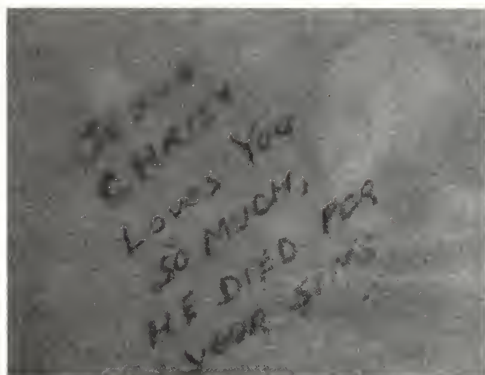 JESUS
CHRIST
LOVES YOU
SO MUCH,
HE DIED FOR
YOUR SINS